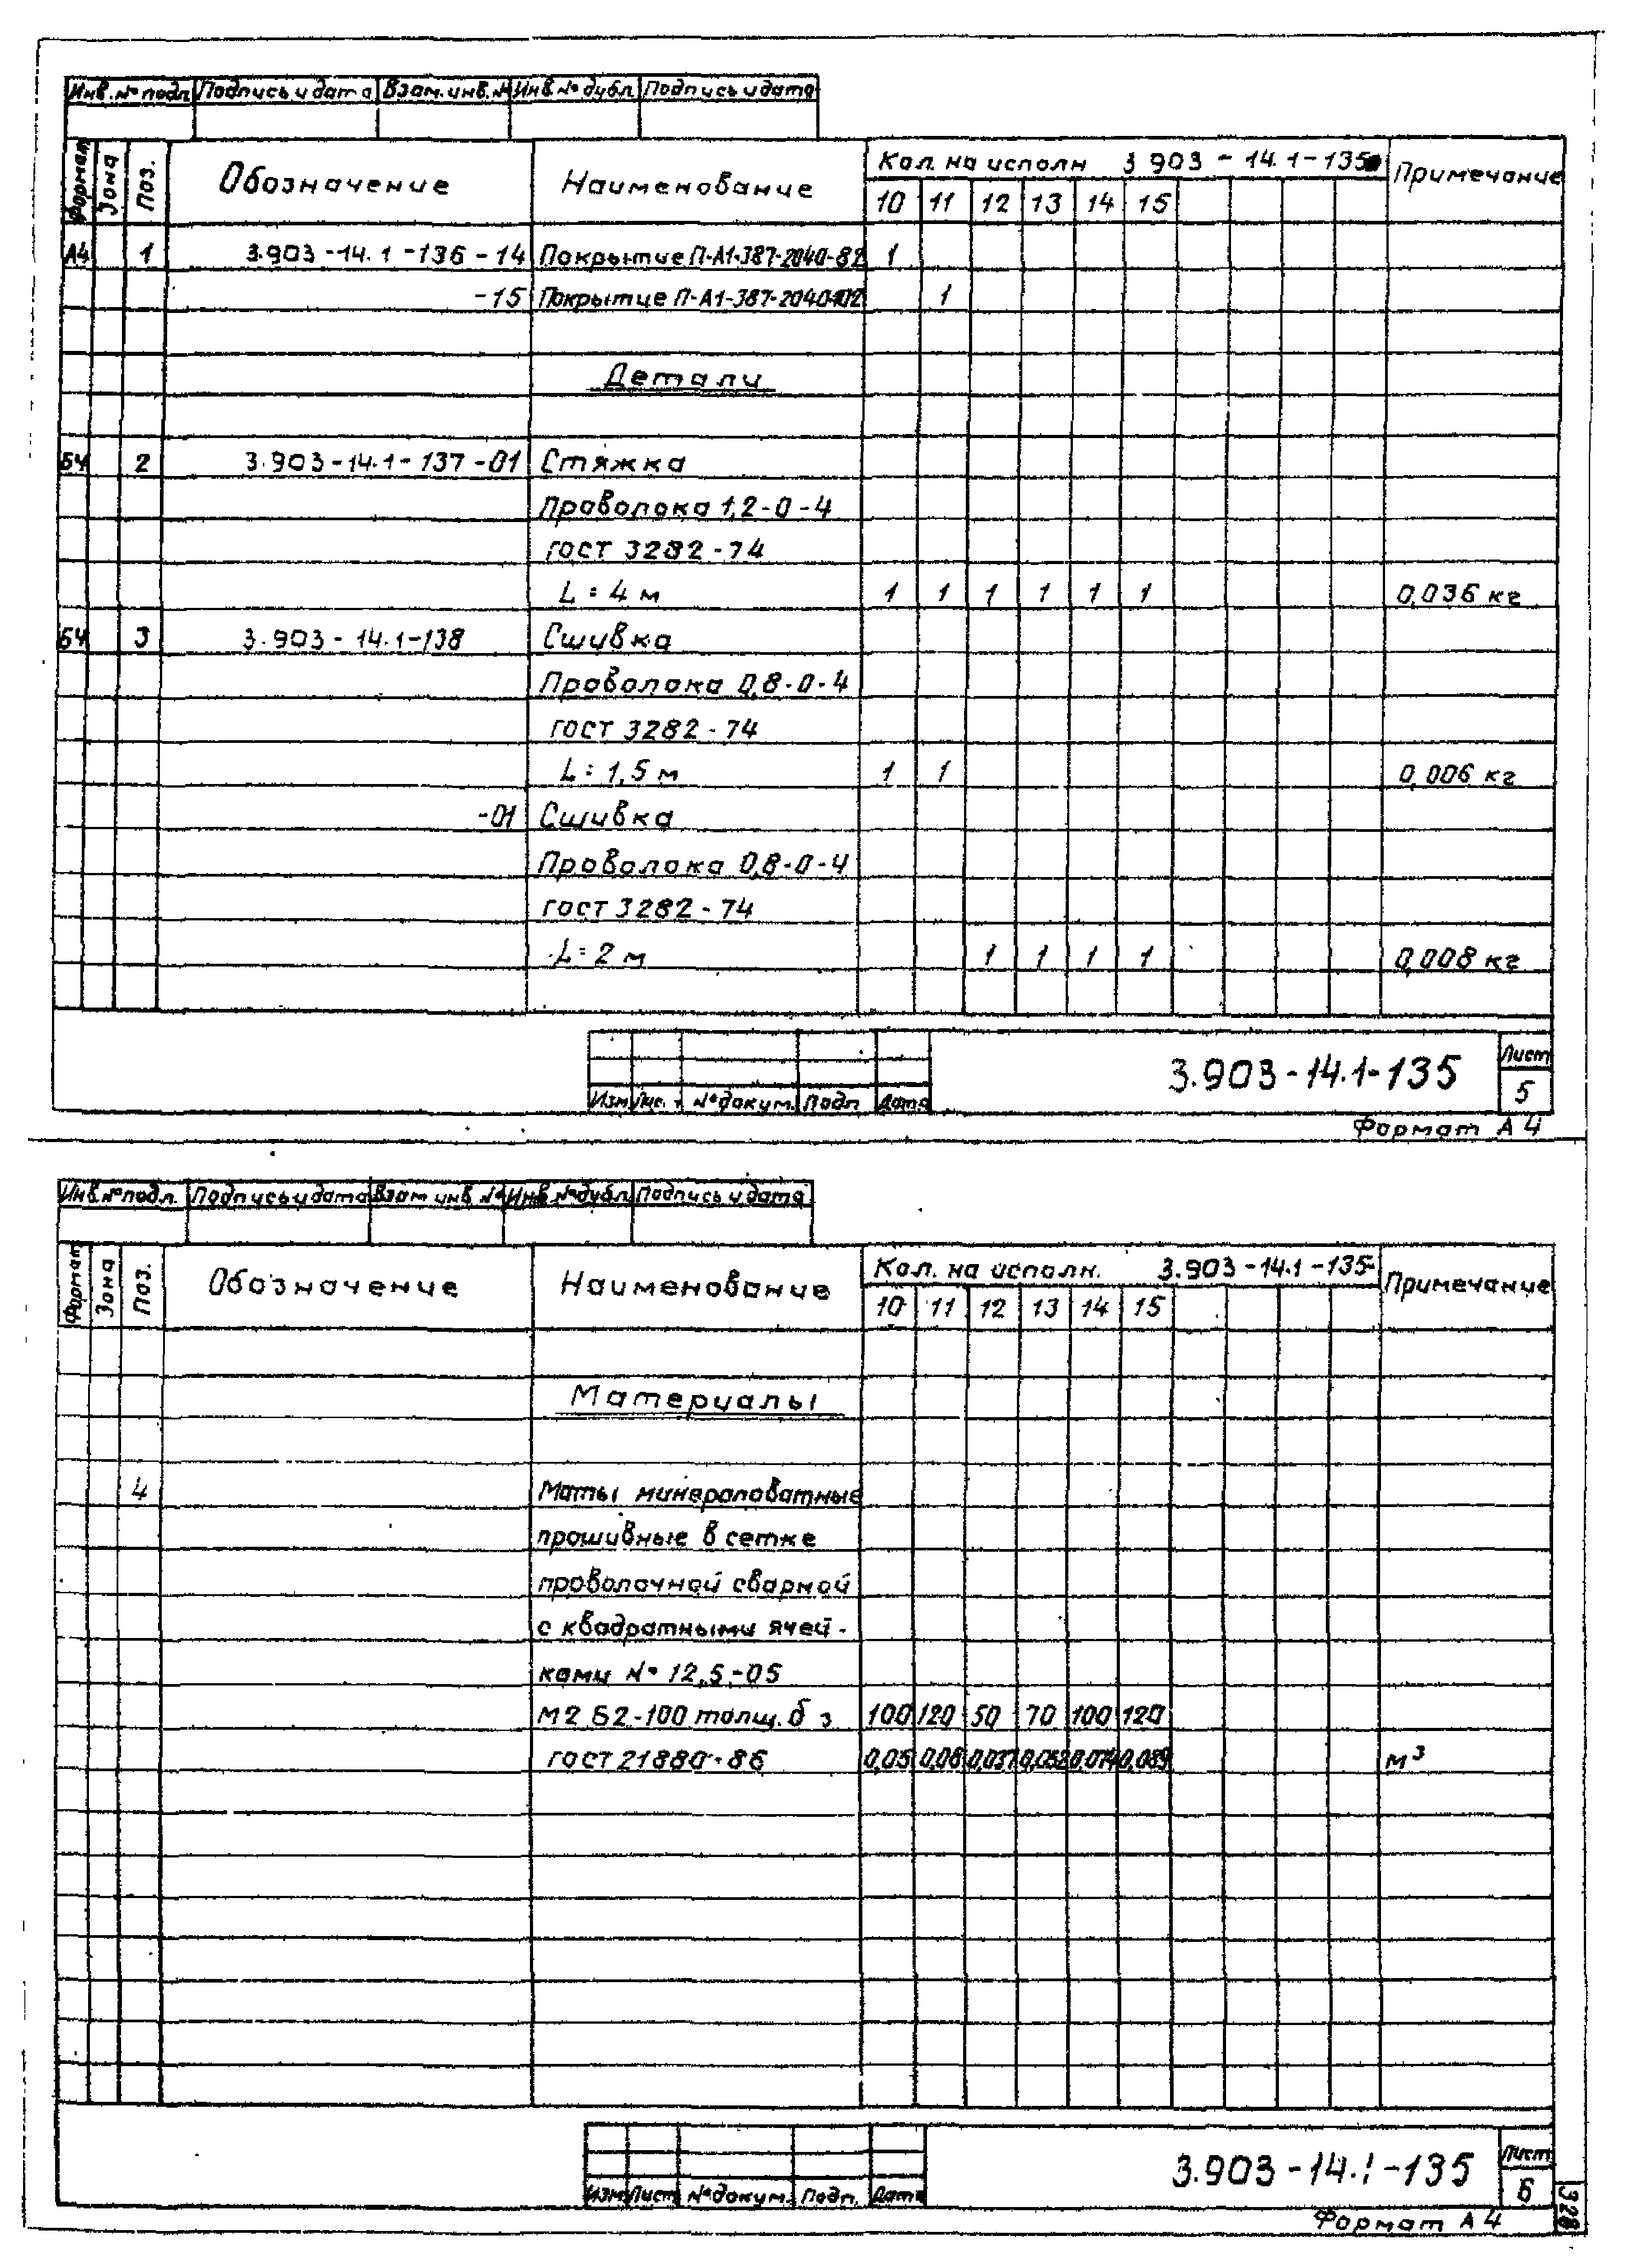 Инв.№ подл. Подпись и дата Взам.инв.№ Инв.№ дубл. Подпись и дата
Формат Зона Поз. Обозначение Наименование Кол. на исполн 3 903 - 14.1-135 Примечание
10 11 12 13 14 15
А4 1 3.903-14.1-136-14 Покрытие П-А1-387-2040-82 1
-15 Покрытие П-А1-387-2040-102 1
Детали
БЧ 2 3.903-14.1-137-01 Стяжка
Проволока 1,2-0-4
ГОСТ 3282-74
L = 4 м 1 1 1 1 1 1 0,036 кг
БЧ 3 3.903-14.1-138 Сшивка
Проволока 0,8-0-4
ГОСТ 3282-74
L = 1,5 м 1 1 0,006 кг
-01 Сшивка
Проволока 0,8-0-4
ГОСТ 3282-74
L = 2 м 1 1 1 1 0,008 кг
3.903-14.1-135 Лист
5
Изм № докум. Подп Дата
Формат А4
Инв.№ подл. Подпись и дата Взам инв.№ Инв.№ дубл. Подпись и дата
Формат Зона Поз. Обозначение Наименование Кол. на исполн. 3.903-14.1-135- Примечание
10 11 12 13 14 15
Материалы
4 Маты минераловатные
прошивные в сетке
проволочной сварной
с квадратными ячей-
ками № 12,5-05
М2 Б2-100 толщ. б з 100 120 50 70 100 120
ГОСТ 21880-86 0,05 0,06 0,037 0,052 0,074 0,089 м³
3.903-14.1-135 Лист
6
Изм Лист № докум. Подп. Дата
Формат А4